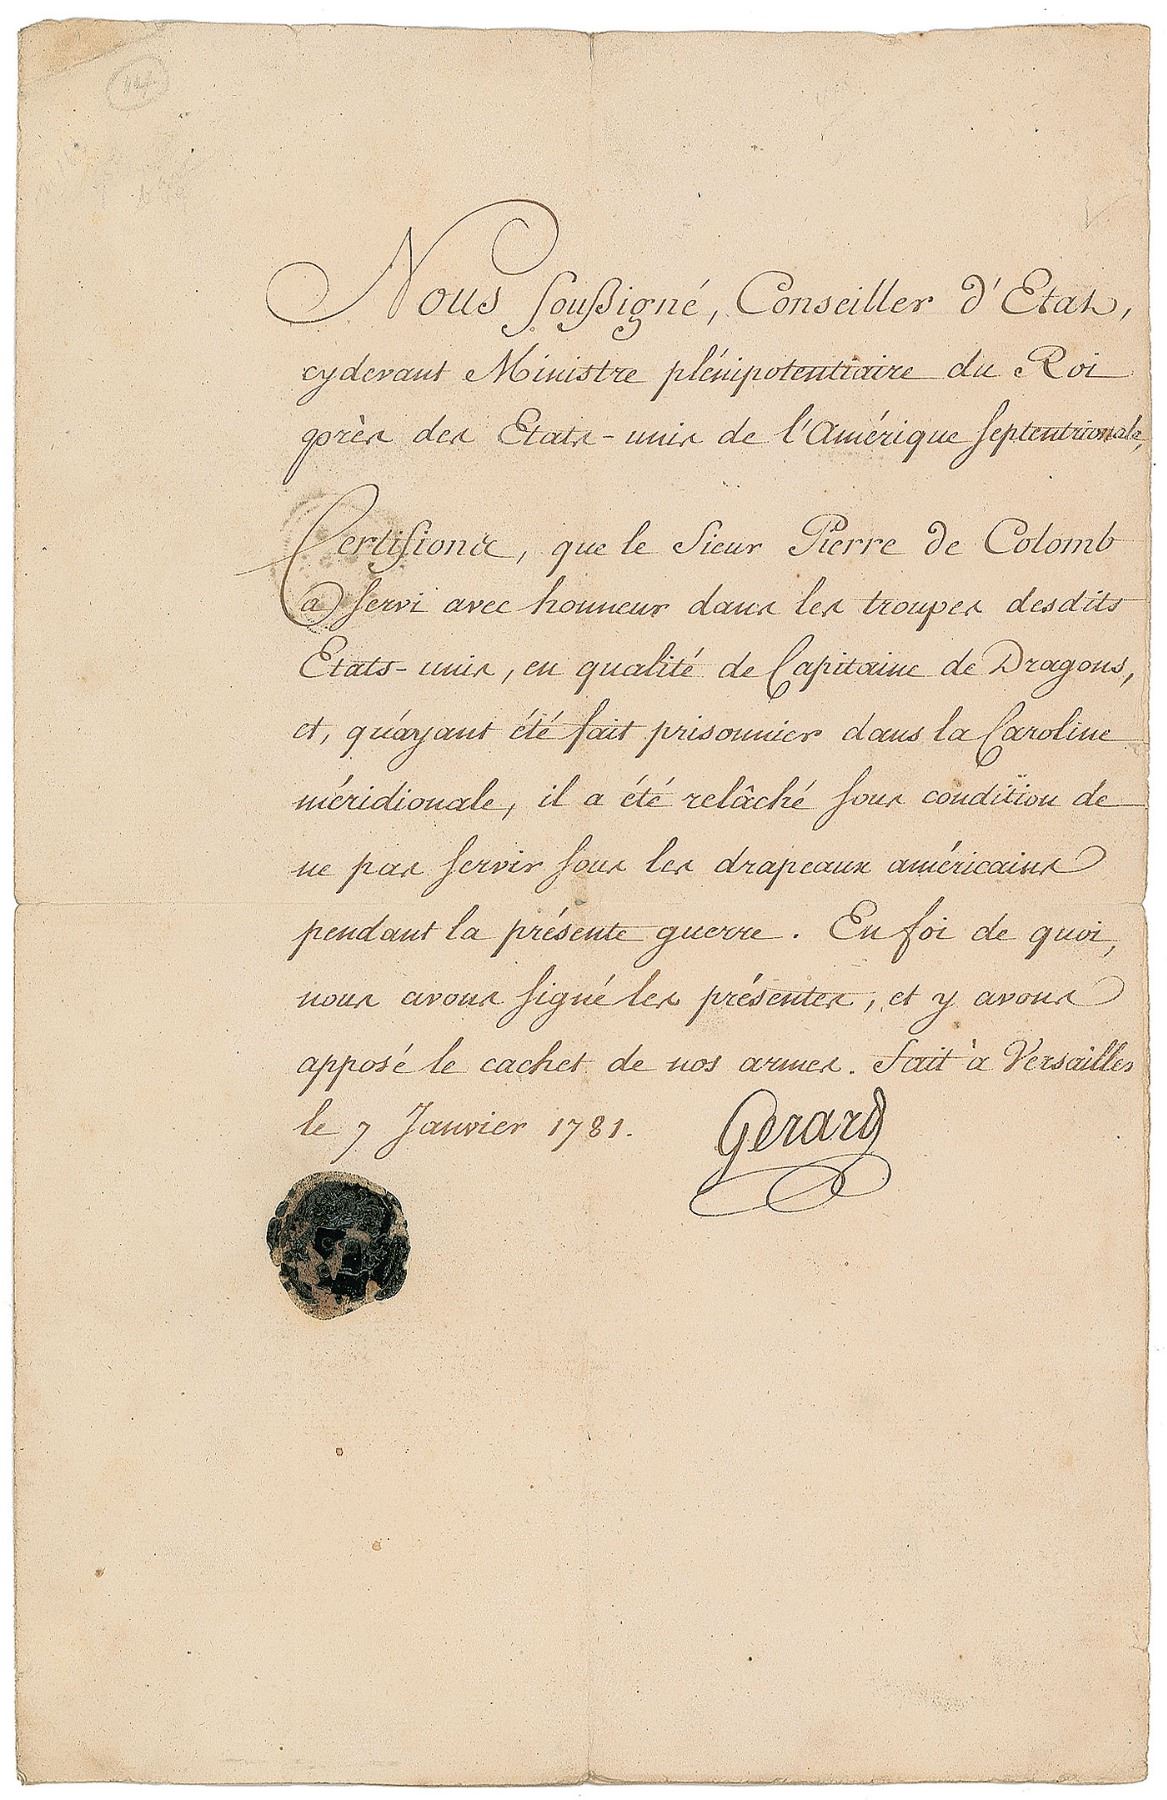 Nous soussigné, Conseiller d'Etat,
cydevant Ministre plénipotentiaire du Roi
près des Etats-unis de l'Amérique septentrionale,
Certifions, que le Sieur Pierre de Colomb
a servi avec honneur dans les troupes desdits
Etats-unis, en qualité de Capitaine de Dragons,
et, qu'ayant été fait prisonnier dans la Caroline
méridionale, il a été relâché sous condition de
ne pas servir sous les drapeaux américains
pendant la présente guerre. En foi de quoi,
nous avons signé les présentes, et y avons
apposé le cachet de nos armes. Fait à Versailles
le 7 Janvier 1781.
Gerard